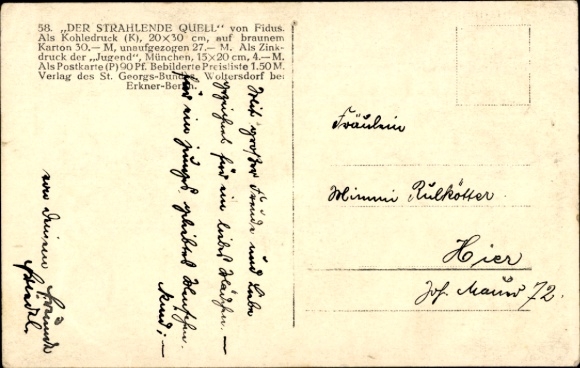 58. „DER STRAHLENDE QUELL" von Fidus.
Als Kohledruck (K), 20×30 cm, auf braunem
Karton 30.— M, unaufgezogen 27.— M. Als Zink-
druck der „Jugend", München, 15×20 cm, 4.— M.
Als Postkarte (P) 90 Pf. Bebilderte Preisliste 1.50 M.
Verlag des St. Georgs-Bundes, Woltersdorf bei
Erkner-Berlin.
Mit großer Freude und Liebe
gezeichnet für ein liebes
für ein junges geliebtes
Kind;—
von Deinem Freunde
Fräulein
Minni Rulkötter.
Hier
Jos. Maus 72.